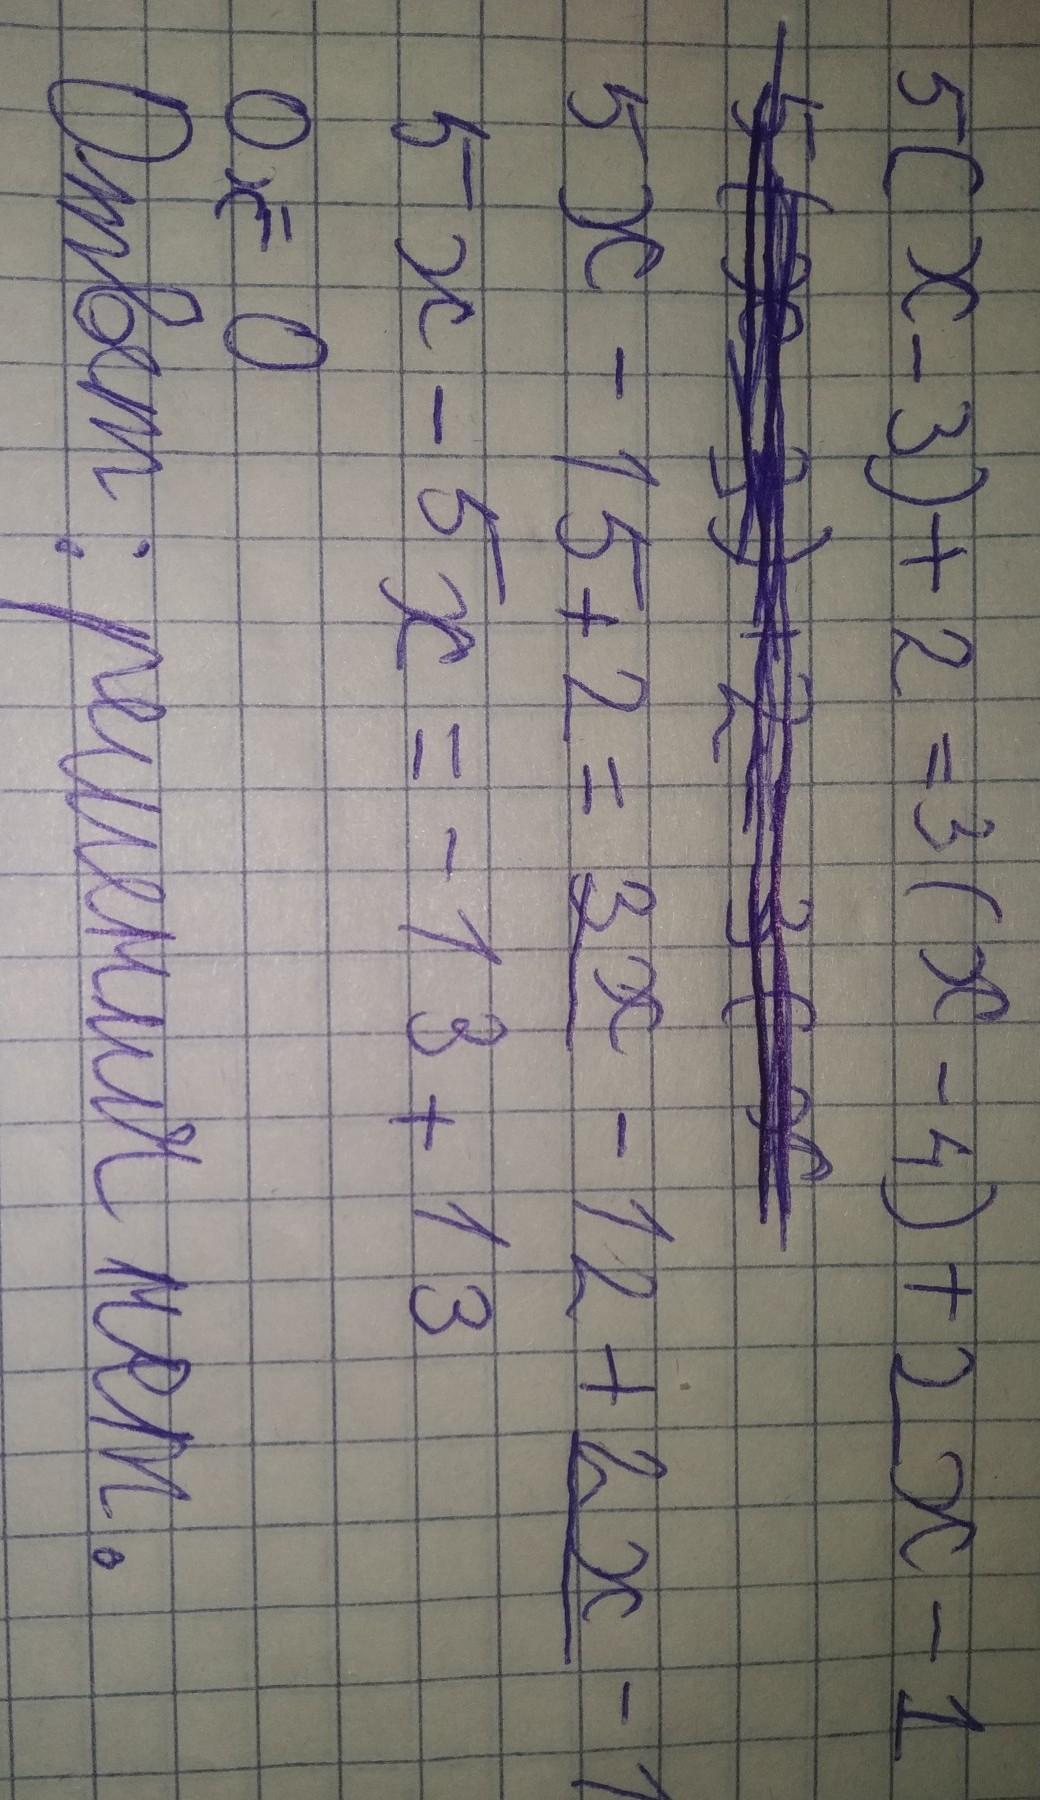 5(x-3)+2=3(x-4)+2x-1
5x-15+2=3x-12+2x-1
5x-5x=-13+13
0x=0
Ответ: решений нет.